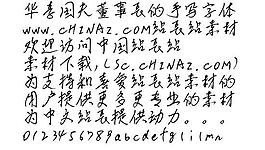 华李国夫董事长的手写字体
www.CHINAZ.COM站长站素材
欢迎访问中国站长站
素材下载,(SC.CHINAZ.COM)
为支持和喜爱站长站素材的
用户提供更多更专业的素材
为中文站长提供动力。。。
0123456789abcdefgiilmn